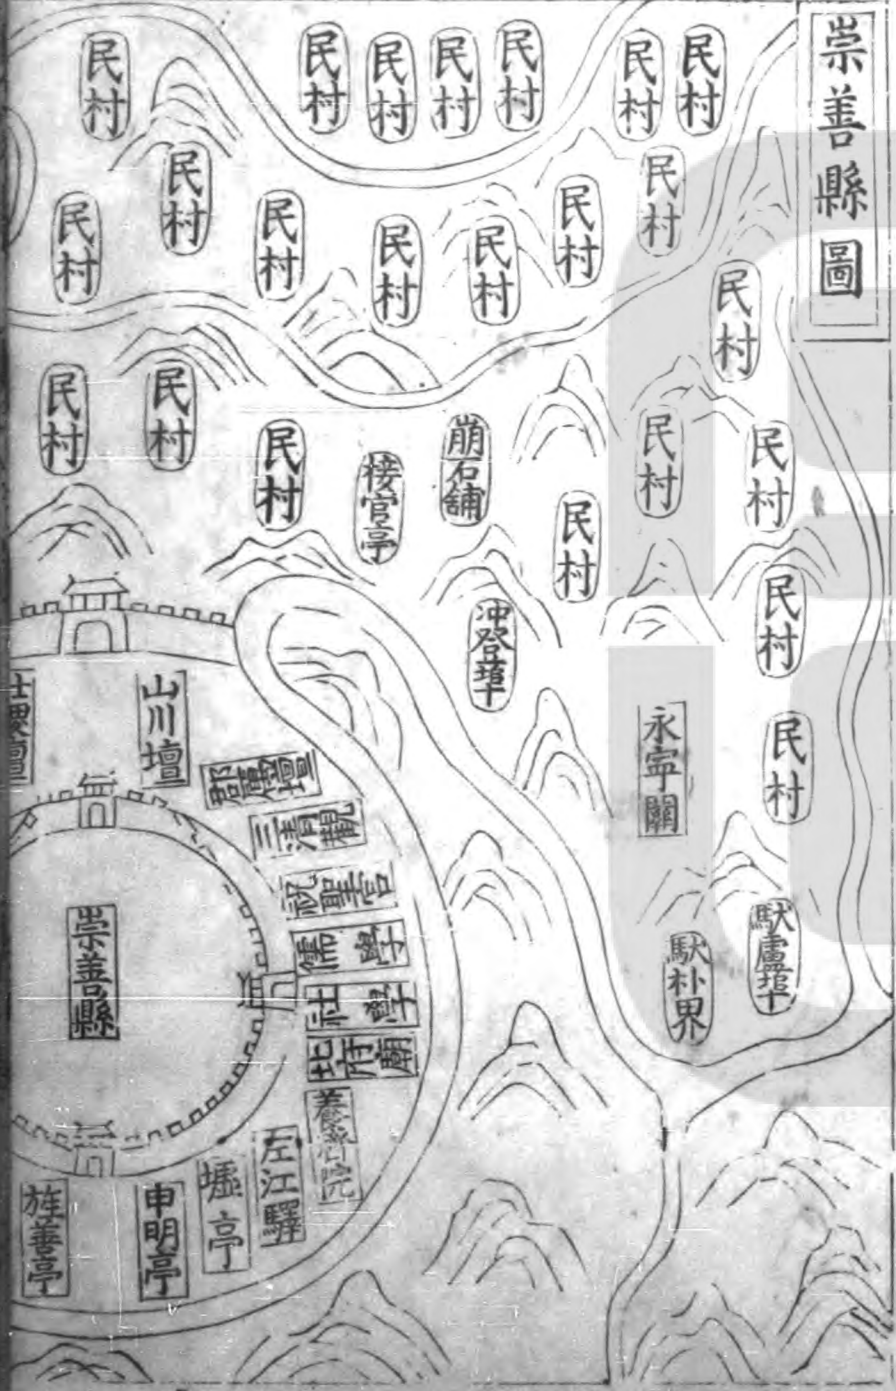 崇善縣圖
民村
民村
民村
民村
民村
民村
民村
民村
民村
民村
民村
民村
民村
民村
民村
民村
民村
民村
民村
崩石舖
接官亭
民村
民村
民村
民村
民村
冲登埠
永寧關
民村
馱盧埠
馱朴界
山川壇
社稷壇
郡厲壇
三清觀
祝聖宮
儒學
社學
府廟
養濟院
左江驛
墟亭
申明亭
旌善亭
崇善縣